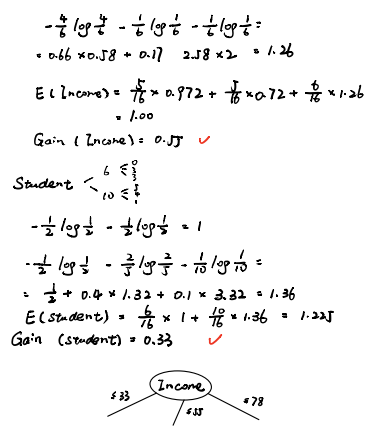 -4/6 log 4/6 - 1/6 log 1/6 - 1/6 log 1/6 =
= 0.66 × 0.58 + 0.17 2.58 × 2 = 1.26
E (Income) = 5/16 × 0.972 + 5/16 × 0.72 + 6/16 × 1.26
= 1.00
Gain (Income) = 0.55 ✓
Student < 6 < 0 3 3
10 < 5 4 1
-1/2 log 1/2 - 1/2 log 1/2 = 1
-1/2 log 1/2 - 2/5 log 2/5 - 1/10 log 1/10 =
= 1/2 + 0.4 × 1.32 + 0.1 × 3.32 = 1.36
E (student) = 6/16 × 1 + 10/16 × 1.36 = 1.225
Gain (student) = 0.33 ✓
Income
≤33 ≤55 ≤78